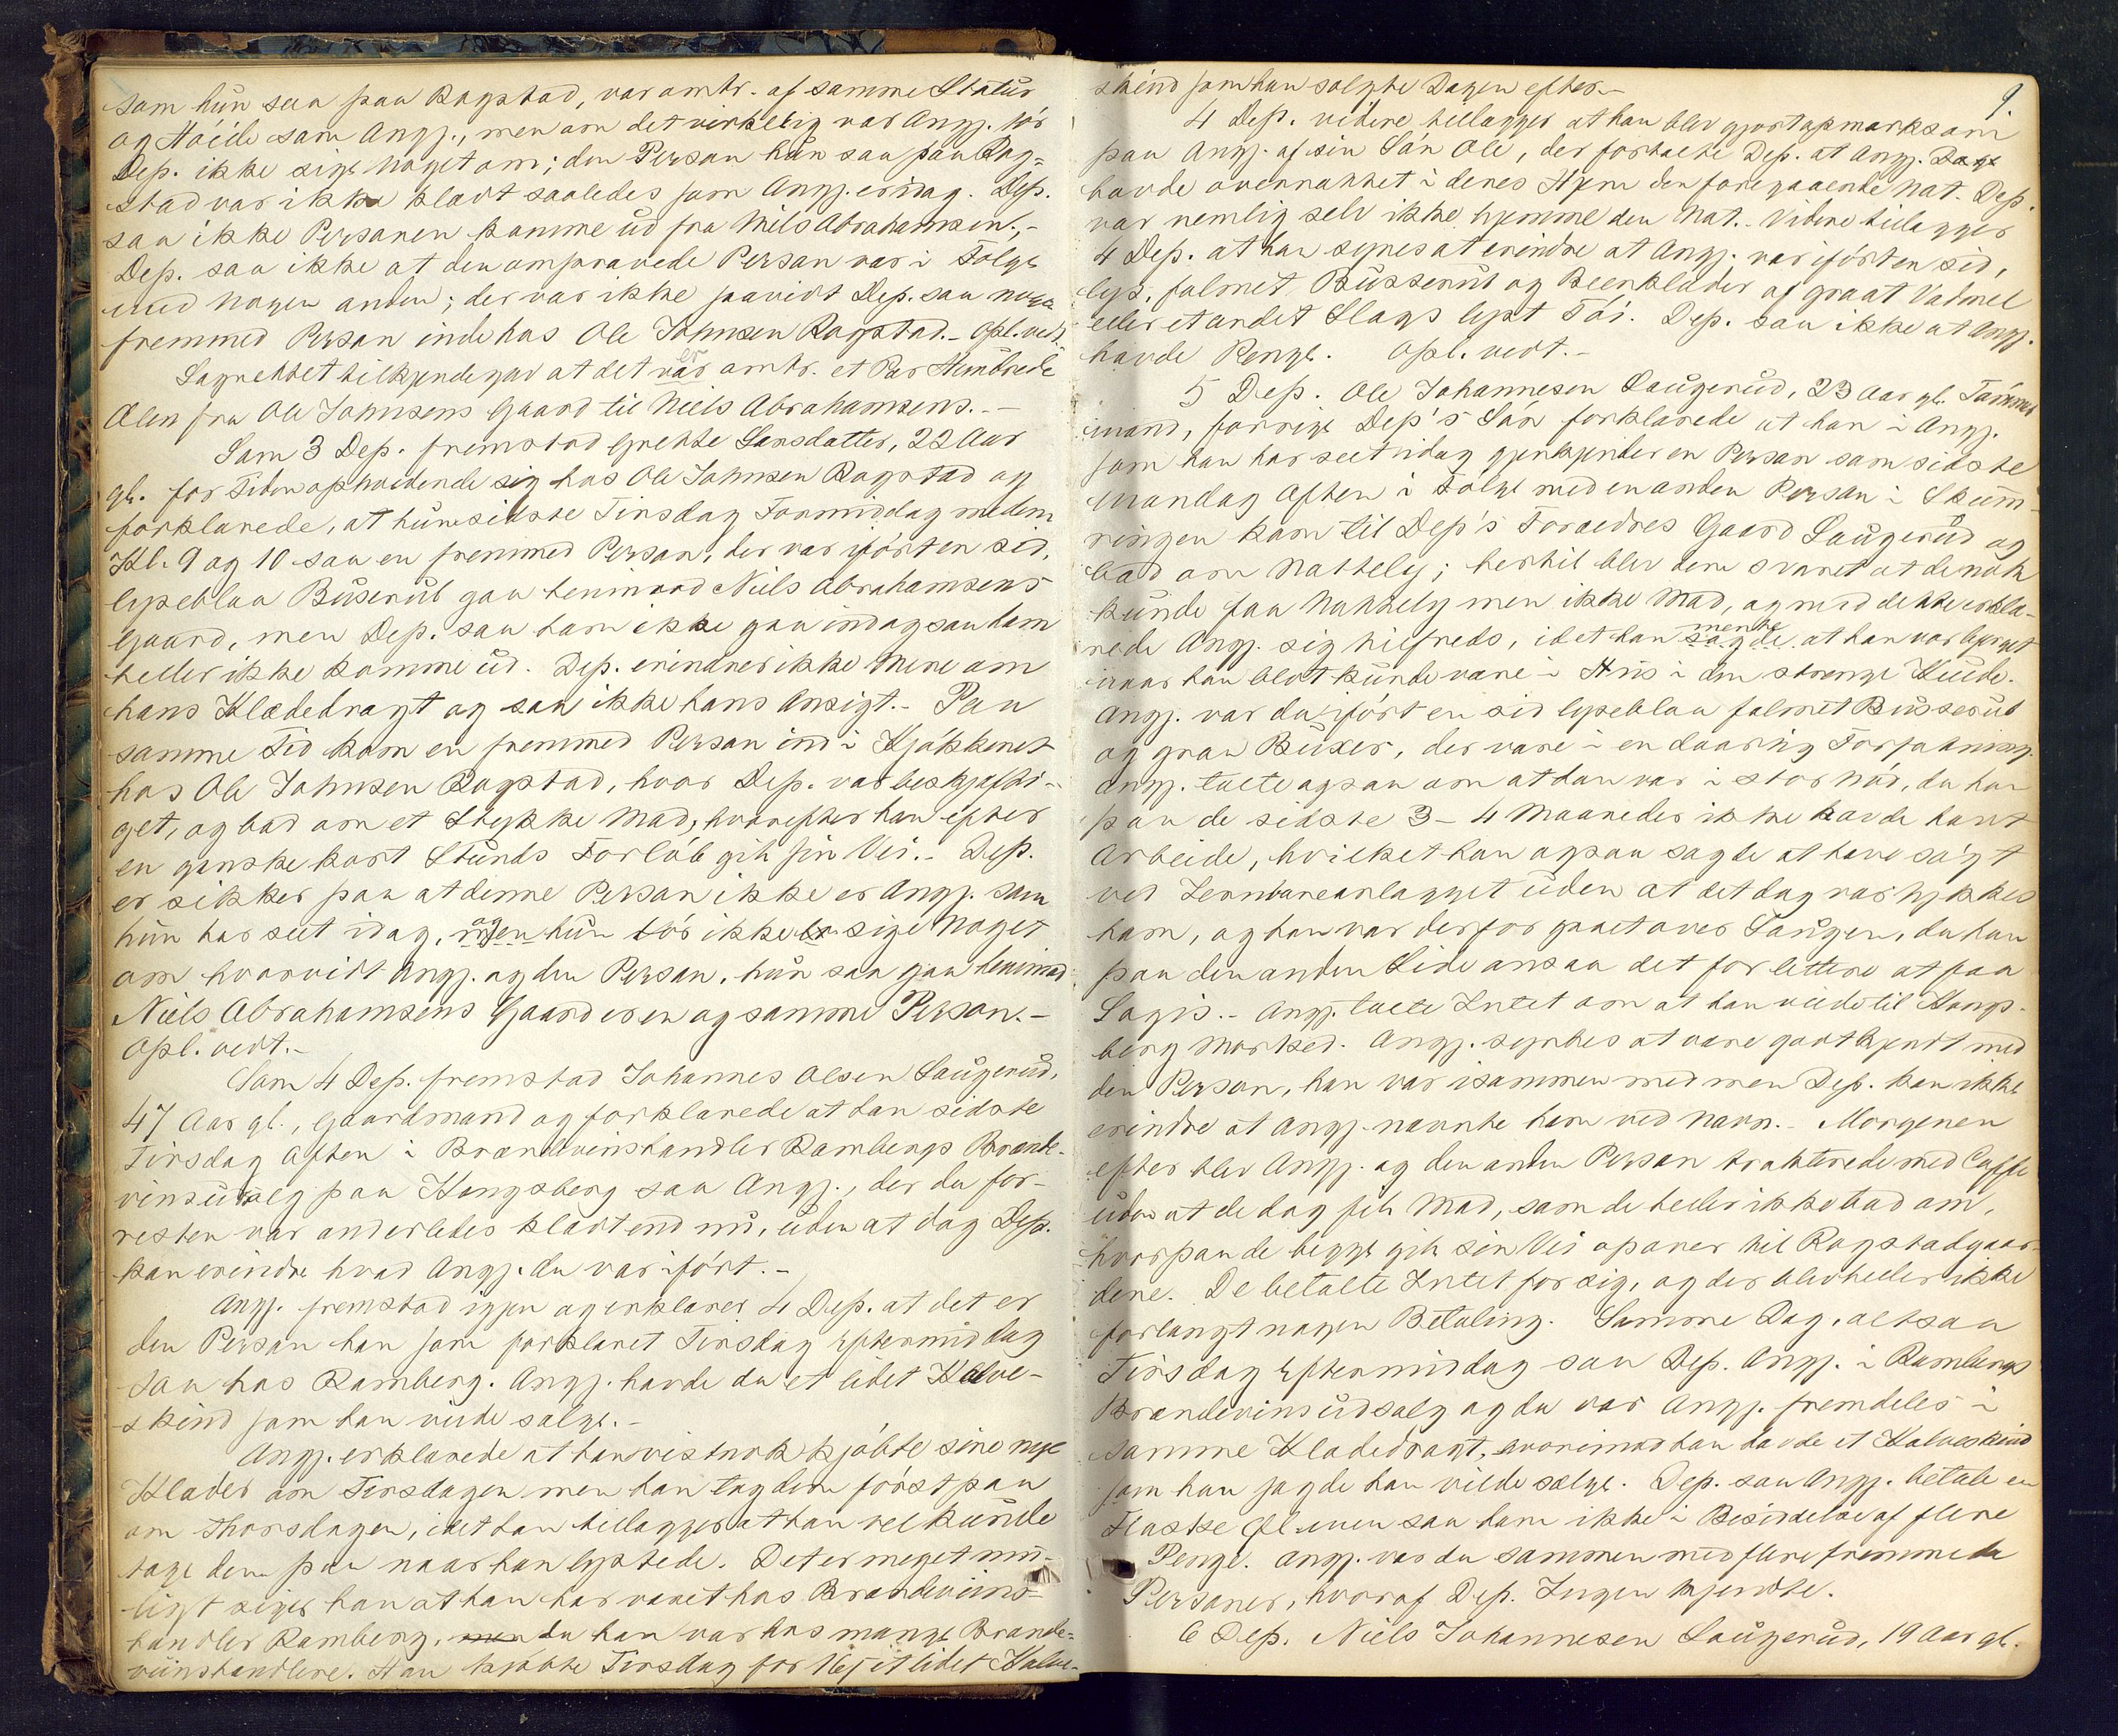 som hun saa paa Ragstad, var omtr. af samme Statur
og Høide som Angj., men om det virkelig var Angj. tør
Dep. ikke sige noget om; den Person hun saa paa Rag=
stad var ikke klædt saaledes som Angj. er idag. Dep.
saa ikke Personen komme ud fra Niels Abrahamsen.-
Dep. saa ikke at den omprøvede Person var i Følge
med nogen anden; der var ikke saavidt Dep. saa nogen
fremmed Person inde hos Ole Johnsen Ragstad.- Opl. vedt.
Lagrettet tilkjendegav at det var er omtr. et Par Hundrede
Alen fra Ole Johnsens Gaard til Niels Abrahamsens.-
Som 3 Dep. fremstod Grethe Larsdatter, 22 Aar
gl. for Tiden opholdende sig hos Ole Johnsen Ragstad og
forklarede, at hun sidste Tirsdag Formiddag mellem
Kl. 9 og 10 saa en fremmed Person, der var iført en sid,
lyseblaa Buserul gaa henimod Niels Abrahamsens
Gaard, men Dep. saa ham ikke gaa ind og saa ham
heller ikke komme ud. Dep. erindrer ikke mere om
hans Klædedragt og saa ikke hans Ansigt.- Paa
samme Tid kom en fremmed Person ind i Kjøkkenet
hos Ole Johnsen Ragstad, hvor Dep. var beskjæfti-
get, og bad om et Stykke Mad, hvorefter han efter
en ganske kort Stunds Forløb gik sin Vei.- Dep.
er sikker paa at denne Person ikke er Angj. som
hun har seet idag, men og hun tør ikke sige noget
om hvorvidt Angj. og den Person, hun saa gaa henimod
Niels Abrahamsens Gaard er en og samme Person.-
Opl. vedt.-
Som 4 Dep. fremstod Johannes Olsen Laugerud,
47 Aar gl., Gaardmand og forklarede at han sidste
Tirsdag Aften i Brændevinshandler Rambergs Brænde-
vinsudsalg paa Kongsberg saa Angj., der da for-
resten var anderledes klædt end nu, uden at dog Dep.
kan erindre hvad Angj. da var iført.-
Angj. fremstod igjen og erklærer 4 Dep. at det er
den Person han som forklaret Tirsdag Eftermiddag
saa hos Ramberg. Angj. havde da et lidet Kalve-
skind som han vilde sælge.-
Angj. erklærede at han vistnok kjøbte sine nye
Klæder om Tirsdagen men han tog dem først paa
om Thorsdagen, idet han tillægger at han vel kunde
tage dem paa naar han lystede. Det er meget mu-
ligt siger han at han har været hos Brændeviins-
handler Ramberg, men da han var hos mange Brænde-
viinshandlere. Han kjøbte Tirsdag for 16 s et lidet Kalve-
9
skind som han solgte Dagen efter.-
4 Dep. videre tillægger at han blev gjort opmærksom
paa Angj. af sin Søn Ole, der fortalte Dep. at Angj.
havde overnattet i deres Hjem den foregaaende Nat. Dep.
var nemlig selv ikke hjemme den Nat.- Videre tillægger
4 Dep. at han synes at erindre at Angj. var iført en sid,
lys, falmet Busserul og Beenklæder af graat Vadmel
eller et andet Slags lyst Tøi. Dep. saa ikke at Angj.
havde Penge. Opl. vedt.-
5 Dep. Ole Johannesen Laugerud, 23 Aar gl. Tømmer
mand, forrige Dep's Søn forklarede at han i Angj.
som han har seet idag gjenkjender en Person som sidste
Mandag Aften i Følge med en anden Person i Skum-
ringen kom til Dep's Forældres Gaard Laugerud og
bad om Nattely; hertil blev dem svaret at de nok
kunde faa Nattely men ikke Mad, og med dette erklæ-
rede Angj. sig tilfreds, idet han sagde mente at han var hjulpet
naar han blot kunde være i Hus i den strenge Kulde.
Angj. var da iført en sid lyseblaa falmet Busserul
og graa Buxer, der vare i en daarlig Forfatning.
Angj. talte ogsaa om at han var i stor Nød, da han
paa de sidste 3-4 Maaneder ikke havde havt
Arbeide, hvilket han ogsaa sagde at have søgt
ved Jernbaneanlægget uden at det dog var lykkes
ham, og han var derfor gaaet over Laugen, da han
paa den anden Side ansaa det for lettere at faa
Logis.- Angj. talte Intet om at han vilde til Kongs-
berg Marked. Angj. syntes at være godt kjendt med
den Person, han var isammen med men Dep. kan ikke
erindre at Angj. nævnte ham ved Navn.- Morgenen
efter blev Angj. og den anden Person trakterede med Caffe
uden at de dog fik Mad, som de heller ikke bad om,
hvorpaa de begge gik sin Vei opover til Ragstadgaar-
dene. De betalte Intet for sig, og der blev heller ikke
forlangt nogen Betaling. Samme Dag, altsaa
Tirsdag Eftermiddag saa Dep. Angj. i Rambergs
Brændevinsudsalg og da var Angj. fremdeles i
samme Klædedragt, hvorimod han havde et Kalveskind
som han sagde han vilde sælge. Dep. saa Angj. betale en
Flaske Øl men saa ham ikke i Besiddelse af flere
Penge. Angj. var da sammen med flere fremmede
Personer, hvoraf Dep. Ingen kjendte.
6 Dep. Niels Johannesen Laugerud, 19 Aar gl.